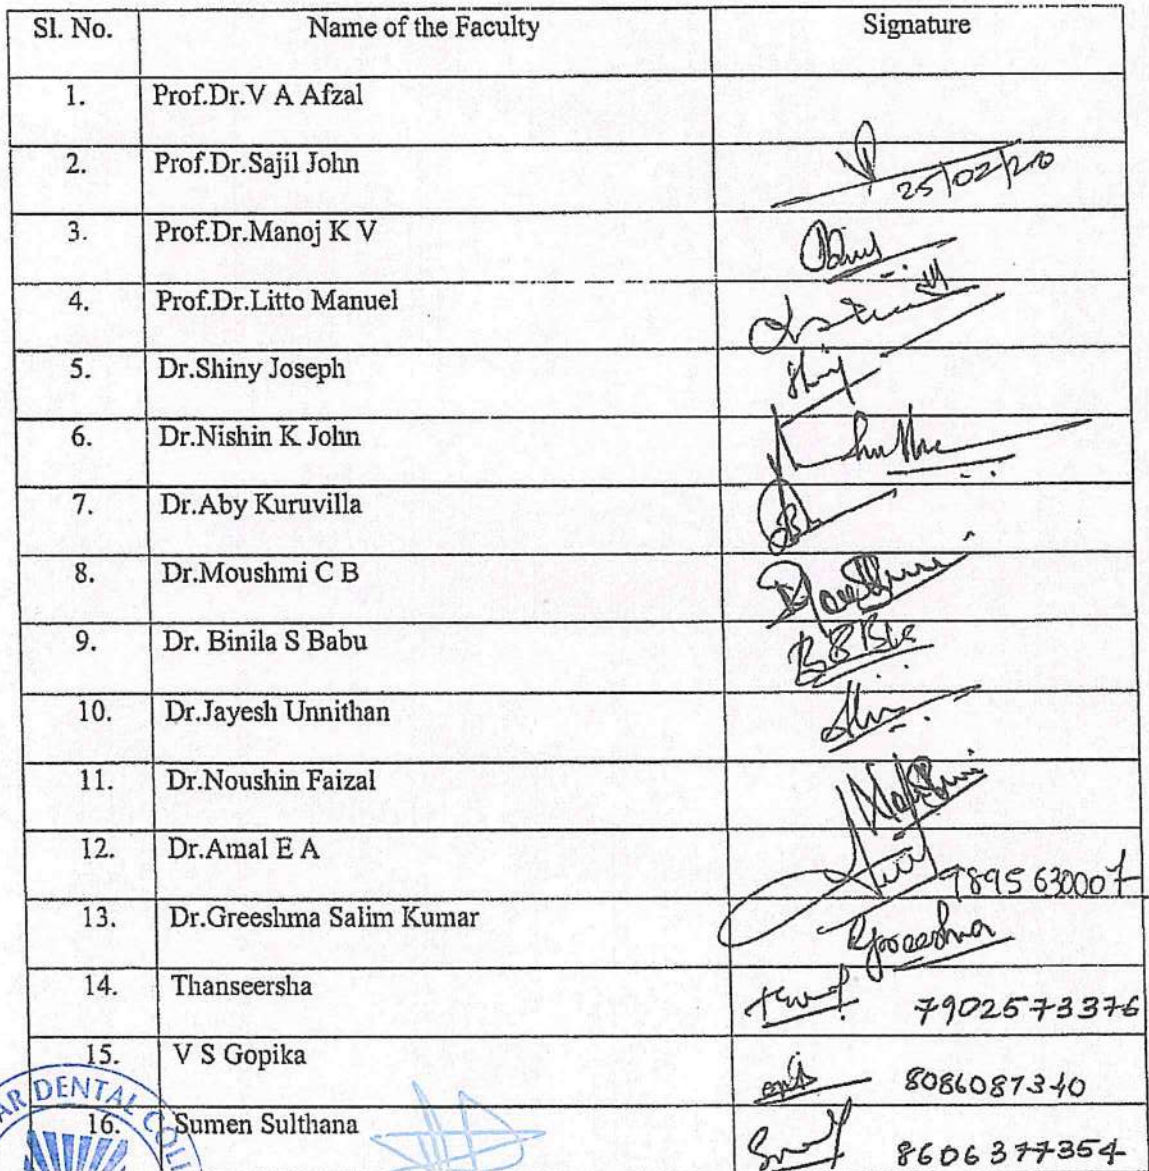 Sl. No. Name of the Faculty Signature
1. Prof.Dr.V A Afzal
2. Prof.Dr.Sajil John 25/02/20
3. Prof.Dr.Manoj K V
4. Prof.Dr.Litto Manuel
5. Dr.Shiny Joseph
6. Dr.Nishin K John
7. Dr.Aby Kuruvilla
8. Dr.Moushmi C B
9. Dr. Binila S Babu
10. Dr.Jayesh Unnithan
11. Dr.Noushin Faizal
12. Dr.Amal E A 9895630007
13. Dr.Greeshma Salim Kumar Greeshma
14. Thanseersha 7902573376
15. V S Gopika 8086087340
16. Sumen Sulthana 8606377354
AR DENTAL COLL